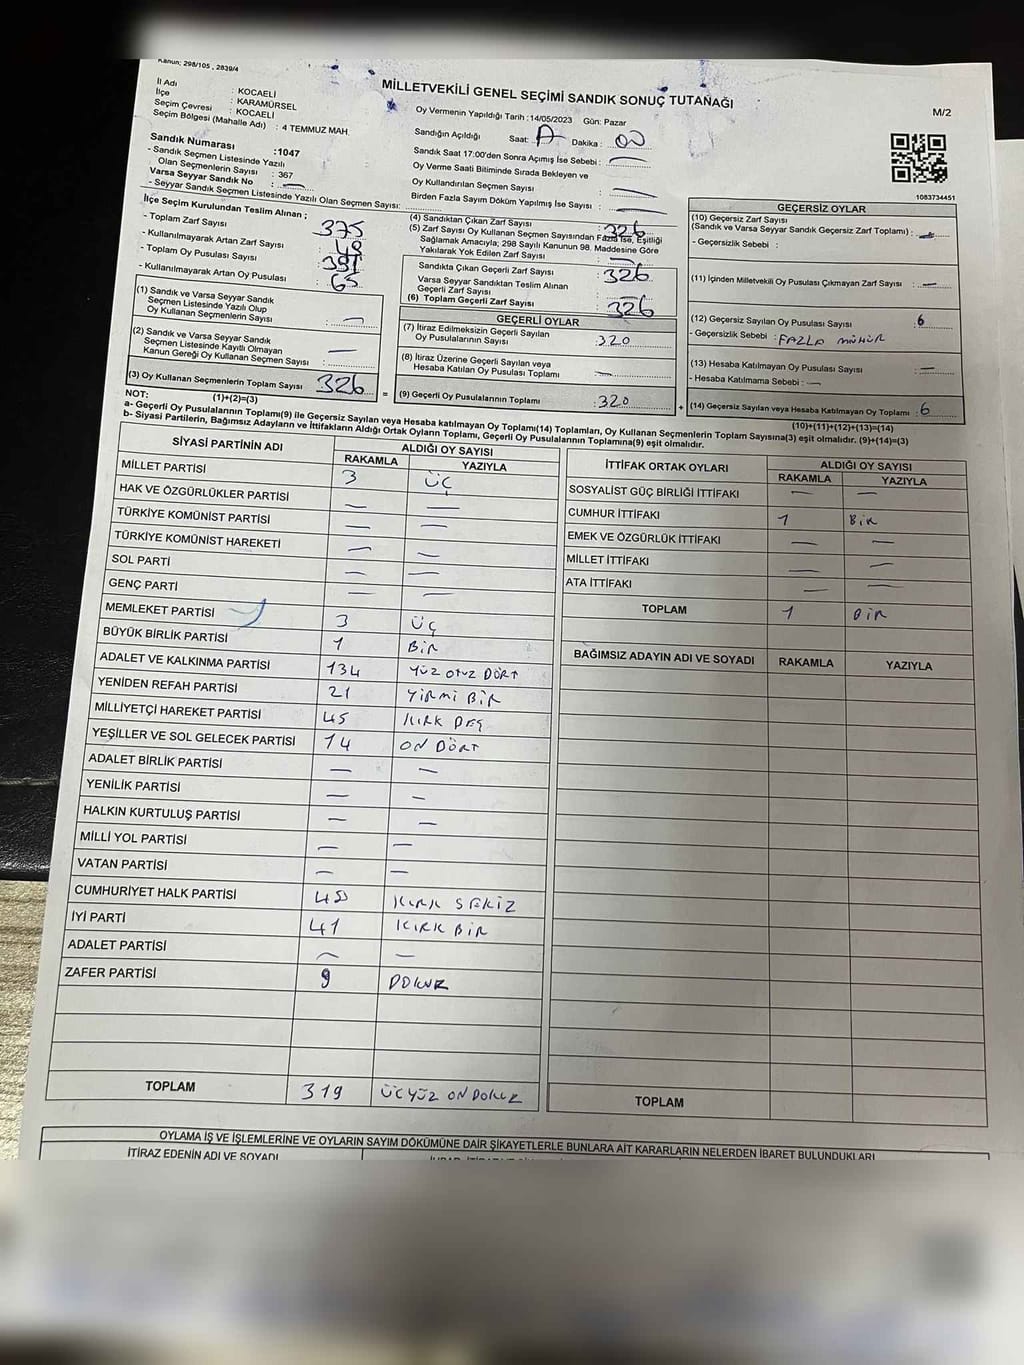 Kanun; 298/105 , 2839/4
MİLLETVEKİLİ GENEL SEÇİMİ SANDIK SONUÇ TUTANAĞI
M/2
İl Adı : KOCAELİ
İlçe : KARAMÜRSEL
Seçim Çevresi : KOCAELİ
Seçim Bölgesi (Mahalle Adı) : 4 TEMMUZ MAH.
Sandık Numarası :1047
- Sandık Seçmen Listesinde Yazılı
Olan Seçmenlerin Sayısı : 367
Varsa Seyyar Sandık No : —
- Seyyar Sandık Seçmen Listesinde Yazılı Olan Seçmen Sayısı:
Oy Vermenin Yapıldığı Tarih :14/05/2023 Gün: Pazar
Sandığın Açıldığı Saat: Dakika : 00
Sandık Saat 17:00'den Sonra Açımış İse Sebebi : —
Oy Verme Saati Bitiminde Sırada Bekleyen ve
Oy Kullandırılan Seçmen Sayısı —
Birden Fazla Sayım Dökümü Yapılmış İse Sayısı : —
1083734451
İlçe Seçim Kurulundan Teslim Alınan ;
- Toplam Zarf Sayısı : 375
- Kullanılmayarak Artan Zarf Sayısı :
- Toplam Oy Pusulası Sayısı : 391
- Kullanılmayarak Artan Oy Pusulası : 65
(1) Sandık ve Varsa Seyyar Sandık
Seçmen Listesinde Yazılı Olup
Oy Kullanan Seçmenlerin Sayısı : —
(2) Sandık ve Varsa Seyyar Sandık
Seçmen Listesinde Kayıtlı Olmayan
Kanun Gereği Oy Kullanan Seçmen Sayısı : —
(3) Oy Kullanan Seçmenlerin Toplam Sayısı 326
(4) Sandıktan Çıkan Zarf Sayısı : 326
(5) Zarf Sayısı Oy Kullanan Seçmen Sayısından Fazla İse, Eşitliği
Sağlamak Amacıyla; 298 Sayılı Kanunun 98. Maddesine Göre
Yakılarak Yok Edilen Zarf Sayısı : —
Sandıkta Çıkan Geçerli Zarf Sayısı : 326
Varsa Seyyar Sandıktan Teslim Alınan
Geçerli Zarf Sayısı : —
(6) Toplam Geçerli Zarf Sayısı : 326
GEÇERLİ OYLAR
(7) İtiraz Edilmeksizin Geçerli Sayılan
Oy Pusulalarının Sayısı : 320
(8) İtiraz Üzerine Geçerli Sayılan veya
Hesaba Katılan Oy Pusulası Toplamı : —
= (9) Geçerli Oy Pusulalarının Toplamı : 320
GEÇERSİZ OYLAR
(10) Geçersiz Zarf Sayısı
(Sandık ve Varsa Seyyar Sandık Geçersiz Zarf Toplamı) : —
- Geçersizlik Sebebi :
(11) İçinden Milletvekili Oy Pusulası Çıkmayan Zarf Sayısı : —
(12) Geçersiz Sayılan Oy Pusulası Sayısı : 6
- Geçersizlik Sebebi : FAZLA MÜHÜR
(13) Hesaba Katılmayan Oy Pusulası Sayısı : —
- Hesaba Katılmama Sebebi : —
+ (14) Geçersiz Sayılan veya Hesaba Katılmayan Oy Toplamı : 6
NOT: (1)+(2)=(3)
(10)+(11)+(12)+(13)=(14)
a- Geçerli Oy Pusulalarının Toplamı(9) ile Geçersiz Sayılan veya Hesaba katılmayan Oy Toplamı(14) Toplamları, Oy Kullanan Seçmenlerin Toplam Sayısına(3) eşit olmalıdır. (9)+(14)=(3)
b- Siyasi Partilerin, Bağımsız Adayların ve İttifakların Aldığı Ortak Oyların Toplamı, Geçerli Oy Pusulalarının Toplamına(9) eşit olmalıdır.
SİYASİ PARTİNİN ADI ALDIĞI OY SAYISI
RAKAMLA YAZIYLA
MİLLET PARTİSİ 3 ÜÇ
HAK VE ÖZGÜRLÜKLER PARTİSİ — —
TÜRKİYE KOMÜNİST PARTİSİ — —
TÜRKİYE KOMÜNİST HAREKETİ — —
SOL PARTİ — —
GENÇ PARTİ — —
MEMLEKET PARTİSİ 3 ÜÇ
BÜYÜK BİRLİK PARTİSİ 1 BİR
ADALET VE KALKINMA PARTİSİ 134 YÜZ OTUZ DÖRT
YENİDEN REFAH PARTİSİ 21 YİRMİ BİR
MİLLİYETÇİ HAREKET PARTİSİ 45 KIRK BEŞ
YEŞİLLER VE SOL GELECEK PARTİSİ 14 ON DÖRT
ADALET BİRLİK PARTİSİ — —
YENİLİK PARTİSİ — —
HALKIN KURTULUŞ PARTİSİ — —
MİLLİ YOL PARTİSİ — —
VATAN PARTİSİ — —
CUMHURİYET HALK PARTİSİ 48 KIRK SEKİZ
İYİ PARTİ 41 KIRK BİR
ADALET PARTİSİ — —
ZAFER PARTİSİ 9 DOKUZ
TOPLAM 319 ÜÇYÜZ ONDOKUZ
İTTİFAK ORTAK OYLARI ALDIĞI OY SAYISI
RAKAMLA YAZIYLA
SOSYALİST GÜÇ BİRLİĞİ İTTİFAKI — —
CUMHUR İTTİFAKI 1 BİR
EMEK VE ÖZGÜRLÜK İTTİFAKI — —
MİLLET İTTİFAKI — —
ATA İTTİFAKI — —
TOPLAM 1 BİR
BAĞIMSIZ ADAYIN ADI VE SOYADI RAKAMLA YAZIYLA
TOPLAM
OYLAMA İŞ VE İŞLEMLERİNE VE OYLARIN SAYIM DÖKÜMÜNE DAİR ŞİKAYETLERLE BUNLARA AİT KARARLARIN NELERDEN İBARET BULUNDUKLARI
İTİRAZ EDENİN ADI VE SOYADI